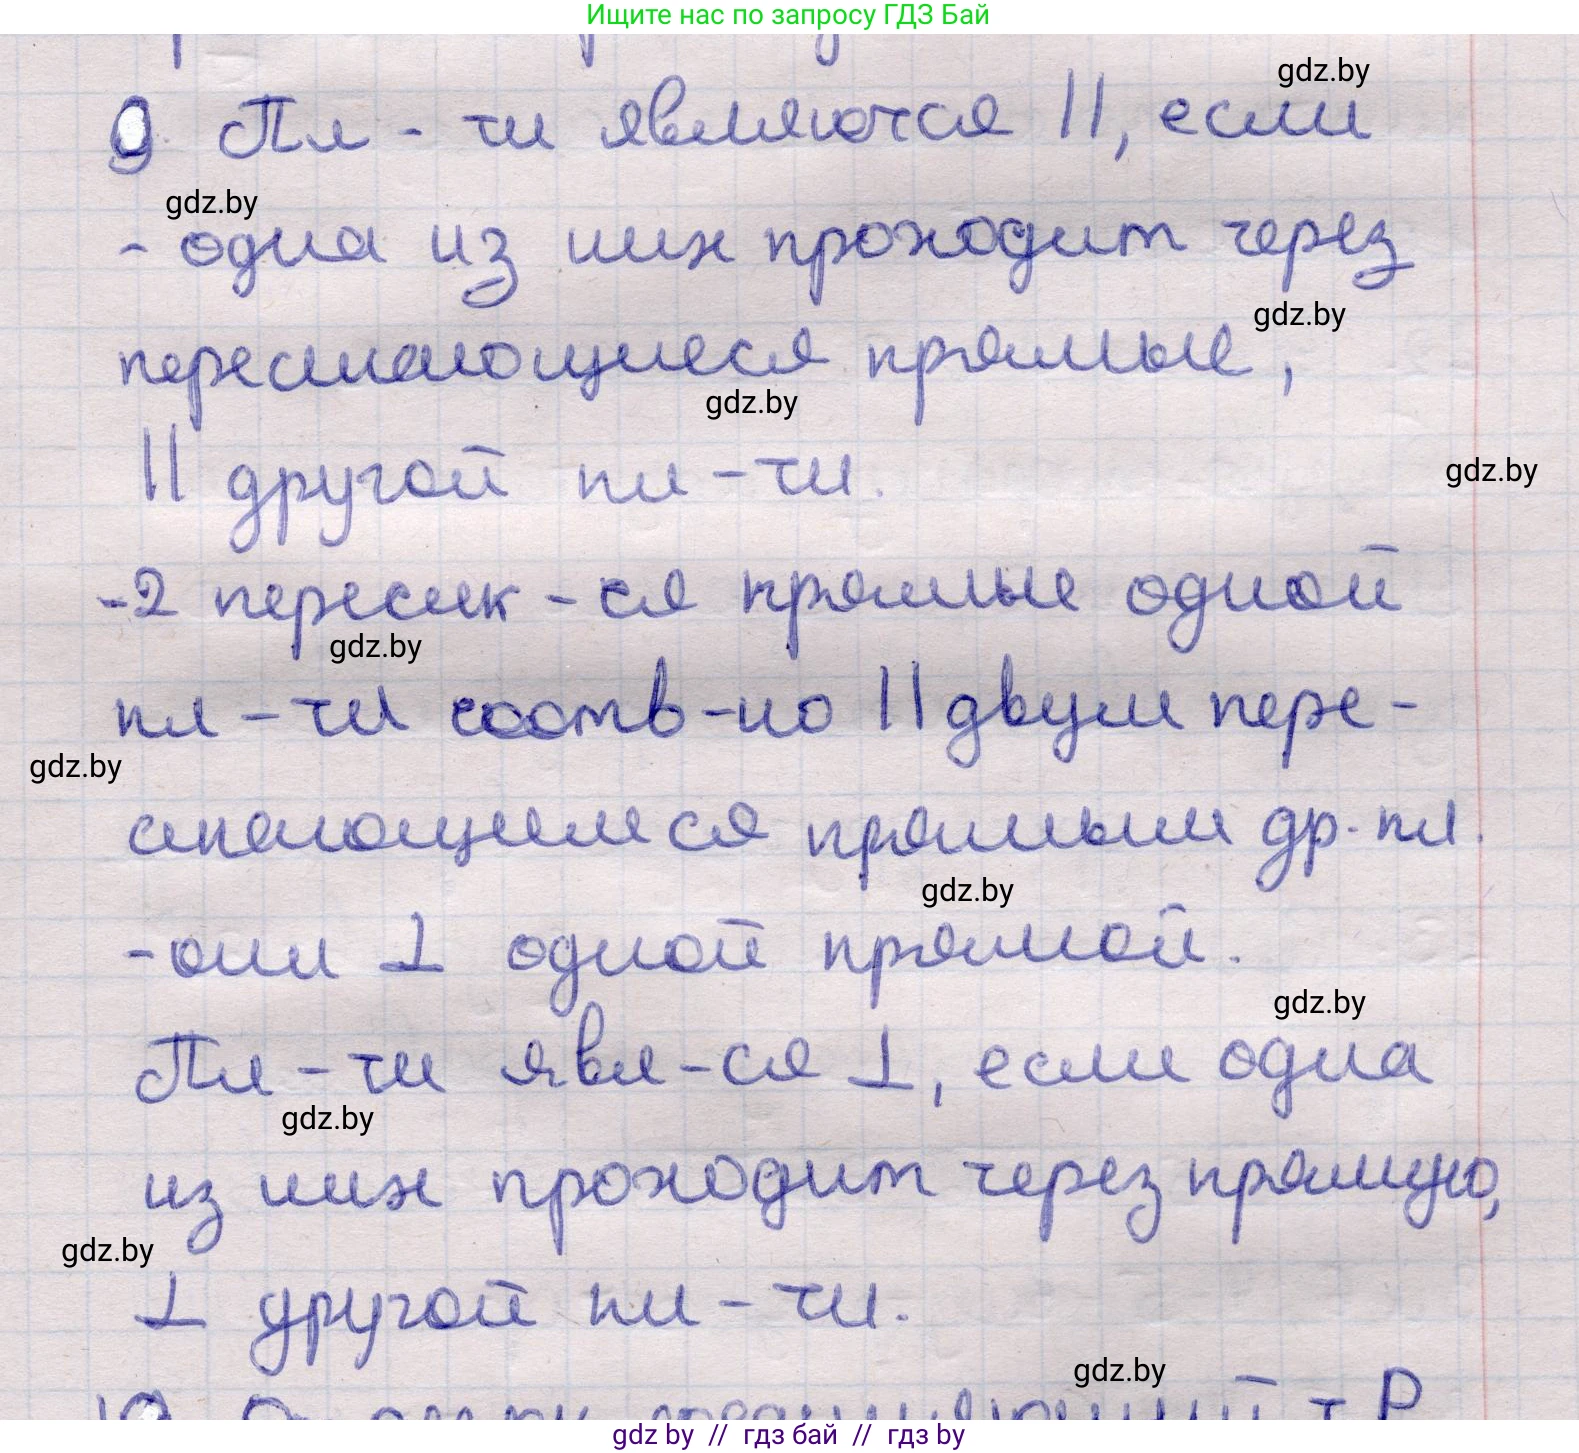 Ищите нас по запросу ГДЗ Бай
gdz.by
9. Пл-ти являются ||, если
gdz.by
- одна из них проходит через
gdz.by
пересекающиеся прямые,
gdz.by
|| другой пл-ти.
gdz.by
-2 пересек-ся прямые одной
gdz.by
пл-ти соотв-но || двум пере-
gdz.by
секающимся прямым др. пл.
gdz.by
-они ⊥ одной прямой.
gdz.by
Пл-ти явл-ся ⊥, если одна
gdz.by
из них проходит через прямую,
gdz.by
⊥ другой пл-ти.
gdz.by
gdz by // гдз бай // гдз by